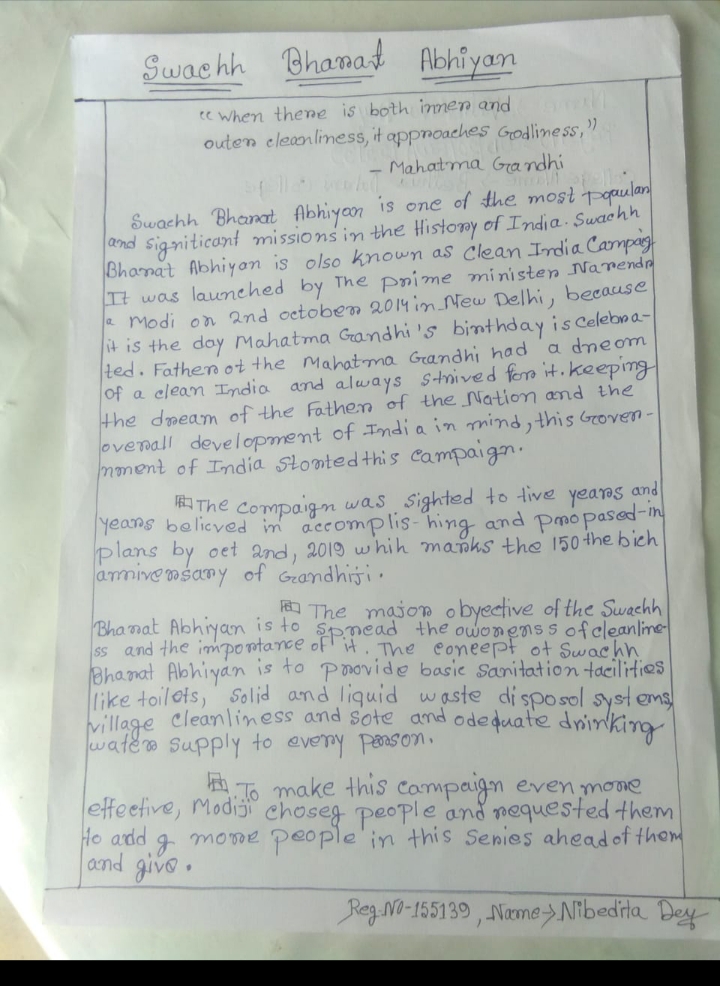 Swachh Bharat Abhiyan
"When there is both inner and
outer cleanliness, it approaches Godliness,"
- Mahatma Gandhi
Swachh Bharat Abhiyan is one of the most popular
and significant missions in the History of India. Swachh
Bharat Abhiyan is also known as Clean India Campag
It was launched by The prime minister Narendr
a Modi on 2nd october 2014 in New Delhi, because
it is the day Mahatma Gandhi's birthday is celebra-
ted. Father of the Mahatma Gandhi had a dream
of a clean India and always strived for it. keeping
the dream of the Father of the Nation and the
overall development of India in mind, this Gover-
nment of India Started this campaign.
The campaign was sighted to five years and
years believed in accomplis-hing and propased-in
plans by oct 2nd, 2019 whih marks the 150 the bich
anniversary of Gandhiji.
The major obyective of the Swachh
Bharat Abhiyan is to spread the awarenss of cleanline-
ss and the importance of it. The concept of Swachh
Bharat Abhiyan is to provide basic sanitation facilities
like toilets, solid and liquid waste disposal systems,
village cleanliness and safe and adequate drinking
water supply to every person.
To make this campaign even more
effective, Modiji choseg people and requested them
to add g more people in this Series ahead of them
and give.
Reg.No-155139, Name→Nibedita Dey